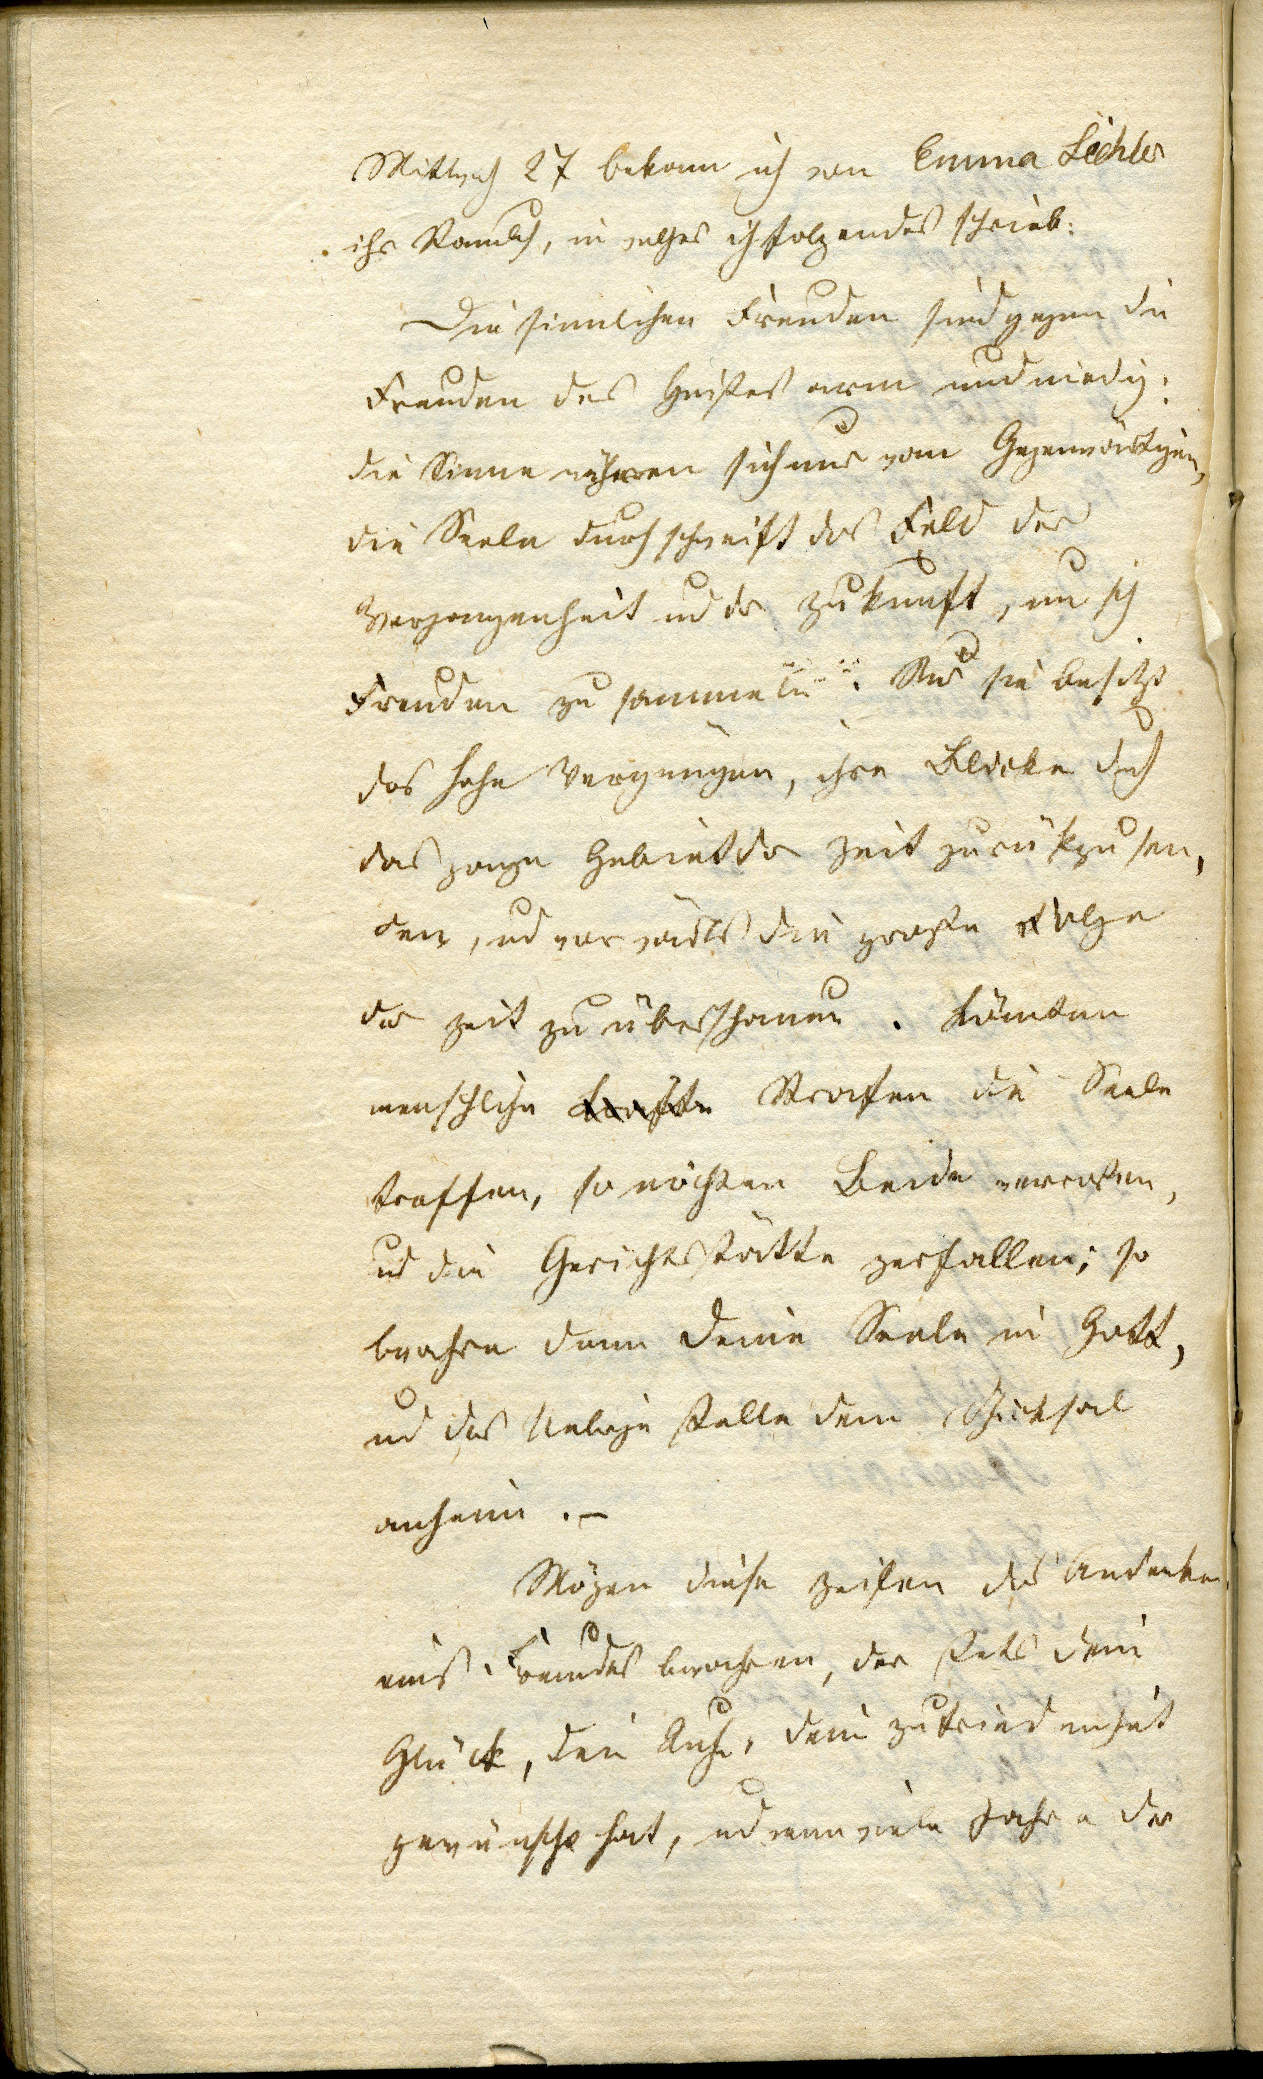 Mittwch 27 bekam ich von Emma Lichler
ihr Stambch, in welches ich folgendes schrieb:
Die sinnlichen Freuden sind gegen die
Freuden des Geistes arm und niedrig;
die Sinne nähren sich nur vom Gegenwärtigen,
die Seele durchschweift das Feld der
Vergangenheit und der Zukunft, um sich
Freuden zu sammeln. Nur sie besitzt
das hohe Vergnügen, ihre Blicke durch
das ganze Gebiet der Zeit zurükzusen,
den, und vorwärts die große Folge
der Zeit zu überschauen. Könnten
menschliche Strafen die Seele
treffen, so möchten Beide
und die Gerichtsstätte zerfallen; so
bewahre denn Deine Seele in Gott,
und das Uebrige stelle dem Schicksal
anheim. –
Mögen diese Zeilen das Andenken
eines Freundes bewahren, der stets dein
Glück, deine Ruhe, deine Zufriedenheit
gewünscht hat, und wenn viele Jahre der